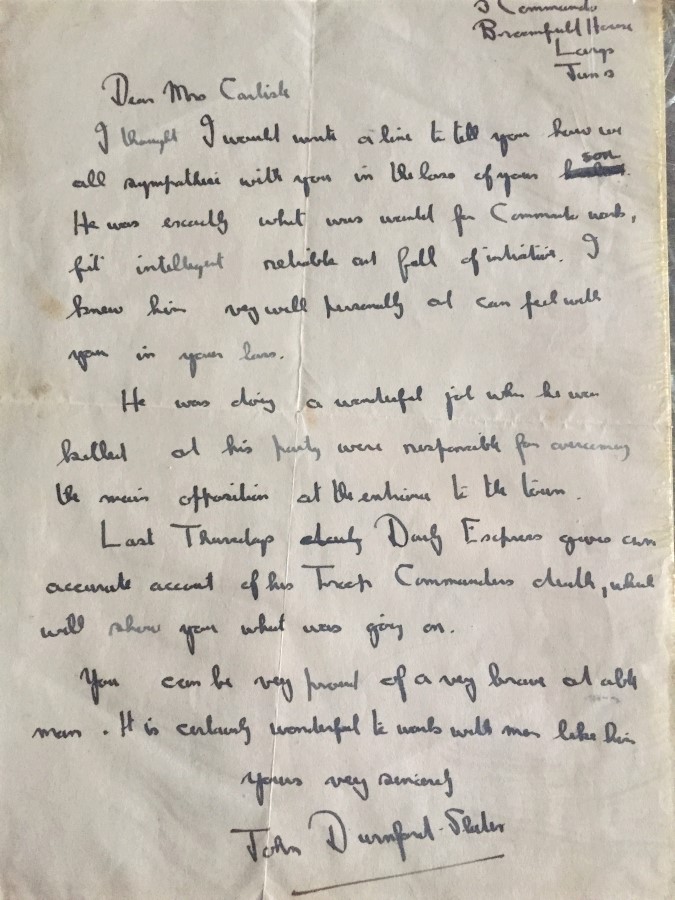 3 Commando
Broomfield House
Largs
Jan 3
Dear Mrs Carlisle
I thought I would write a line to tell you how we
all sympathise with you in the loss of your son.
He was exactly what was wanted for Commando work,
fit intelligent reliable and full of initiative. I
knew him very well personally and can feel with
you in your loss.
He was doing a wonderful job when he was
killed and his party were responsible for overcoming
the main opposition at the entrance to the town.
Last Thursdays Daily Express gives an
accurate account of his Troop Commanders death, which
will show you what was going on.
You can be very proud of a very brave and able
man. It is certainly wonderful to work with men like him
Yours very sincerely
John Durnford-Slater